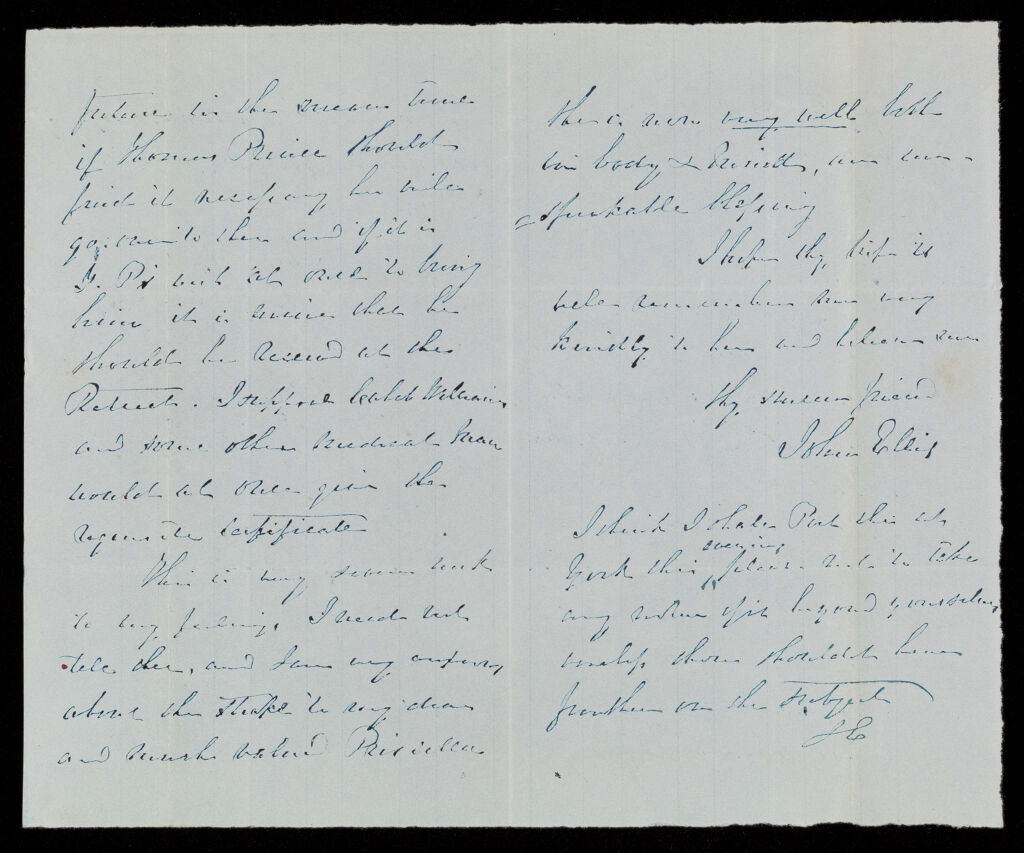 future in the mean time
if Thomas Prince should
find it necessary he will
go over to thee and if it is
T. P's wish at once to bring
him it is mine that he
should be received at the
Retreat. I suppose Caleb Williams
and some other medical man
would at once give the
requisite Certificate
This is very severe work
to my feelings, I need not
tell thee, and I am very anxious
about the shake to my dear
and much valued Priscilla
She is now very well both
in body & mind, an un=
=speakable blessing
I hope thy wife is
well remember me very
kindly to her and believe me
thy sincere friend
John Ellis
I think I shall Post this at
York this evening please not to take
any notice of it beyond yourselves
unless thou shouldst hear
further on the subject
JE